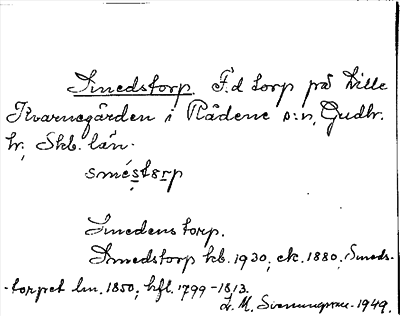 Smedstorp. F.d torp på Lille
Kvarnegården i Rådene s:n, Gudhr.
hr, Skb. län.
smèstɔrp
Smedens torp.
Smedstorp kb. 1930; ek. 1880; Smeds-
-torpet lm. 1850; hfl. 1799-1813.
L. M. 1949.